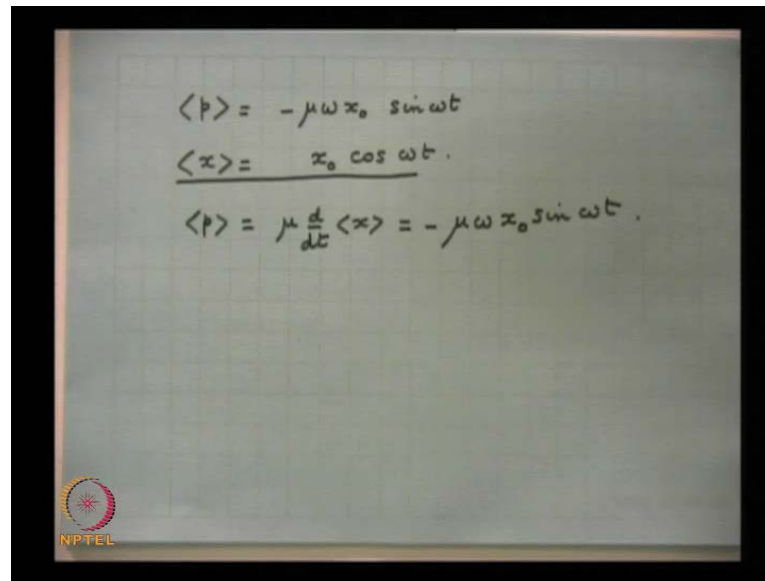 <p> = - μω x₀ sin ωt
<x> = x₀ cos ωt.
<p> = μ d/dt <x> = - μω x₀ sin ωt.
NPTEL